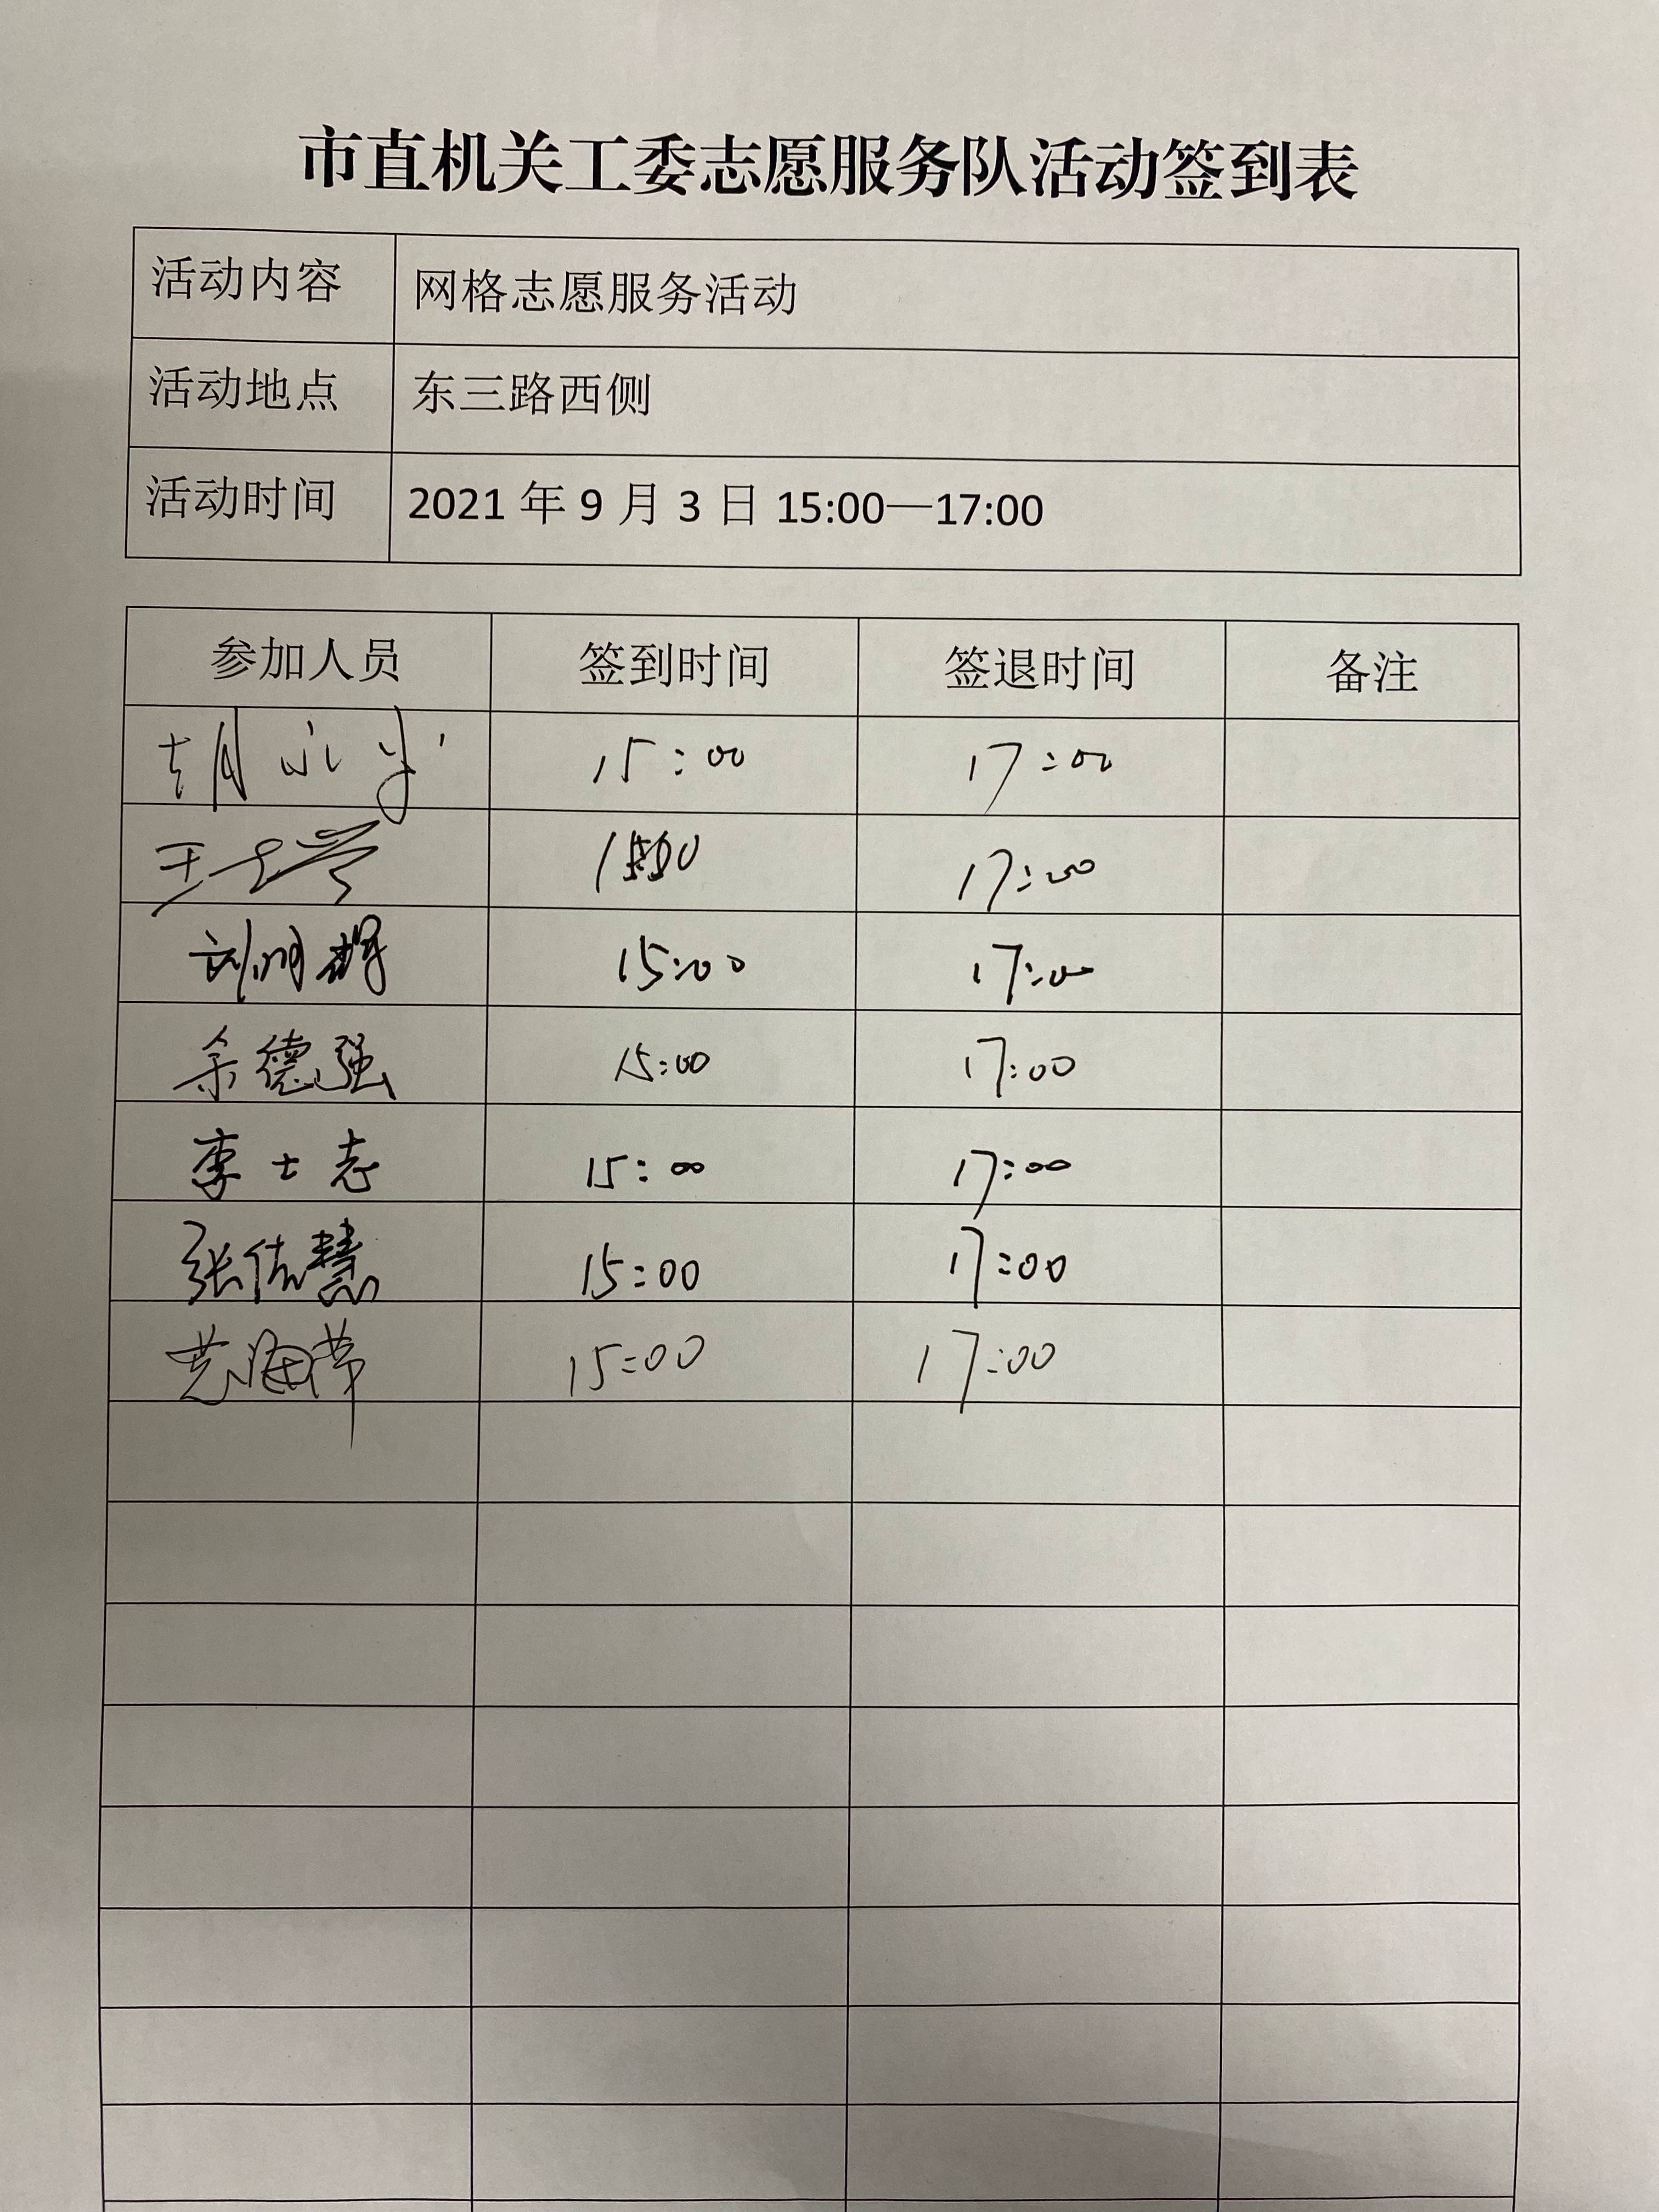 市直机关工委志愿服务队活动签到表
活动内容 网格志愿服务活动
活动地点 东三路西侧
活动时间 2021年9月3日 15:00—17:00
参加人员 签到时间 签退时间 备注
胡永 15:00 17:00
王 1500 17:00
刘明辉 15:00 17:00
余德强 15:00 17:00
李士志 15:00 17:00
张佶慧 15:00 17:00
黄海芾 15:00 17:00